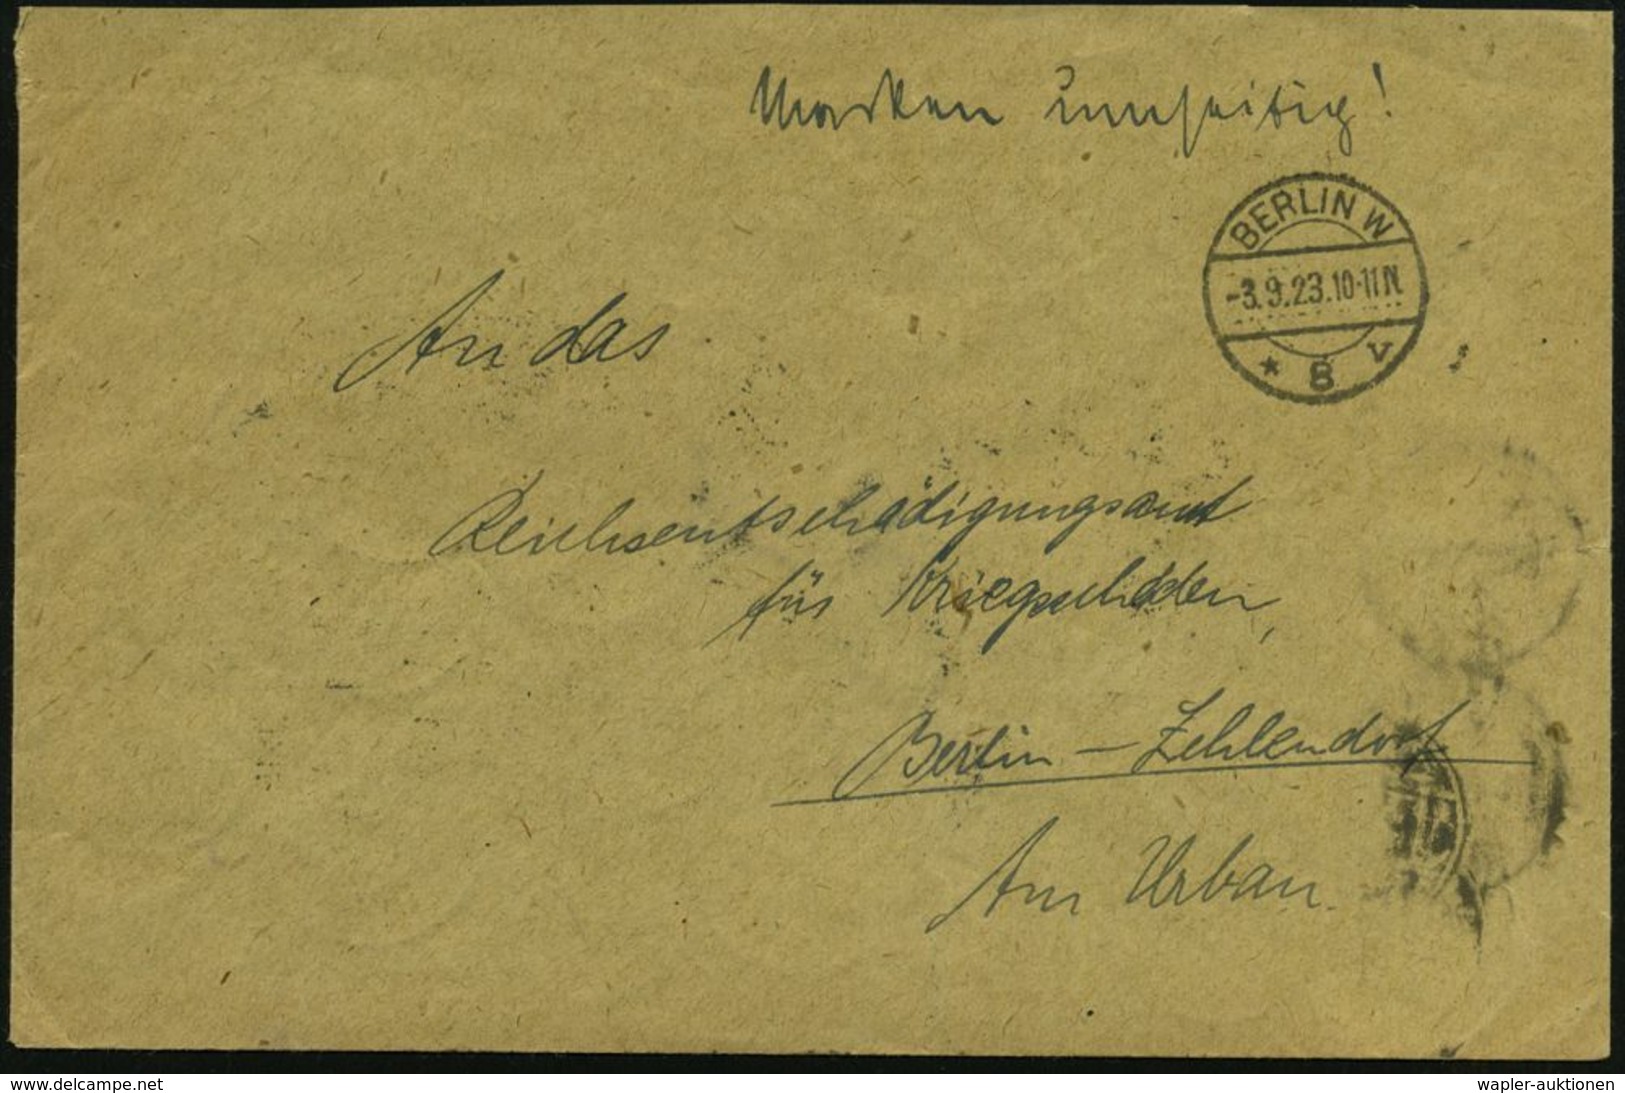 Marken umseitig!
BERLIN W
-3.9.23.10-11N
* 8 v
An das
Reichsentschädigungsamt
für Kriegsschäden,
Berlin-Zehlendorf
Am Urban.
www.delcampe.net
wapler-auktionen